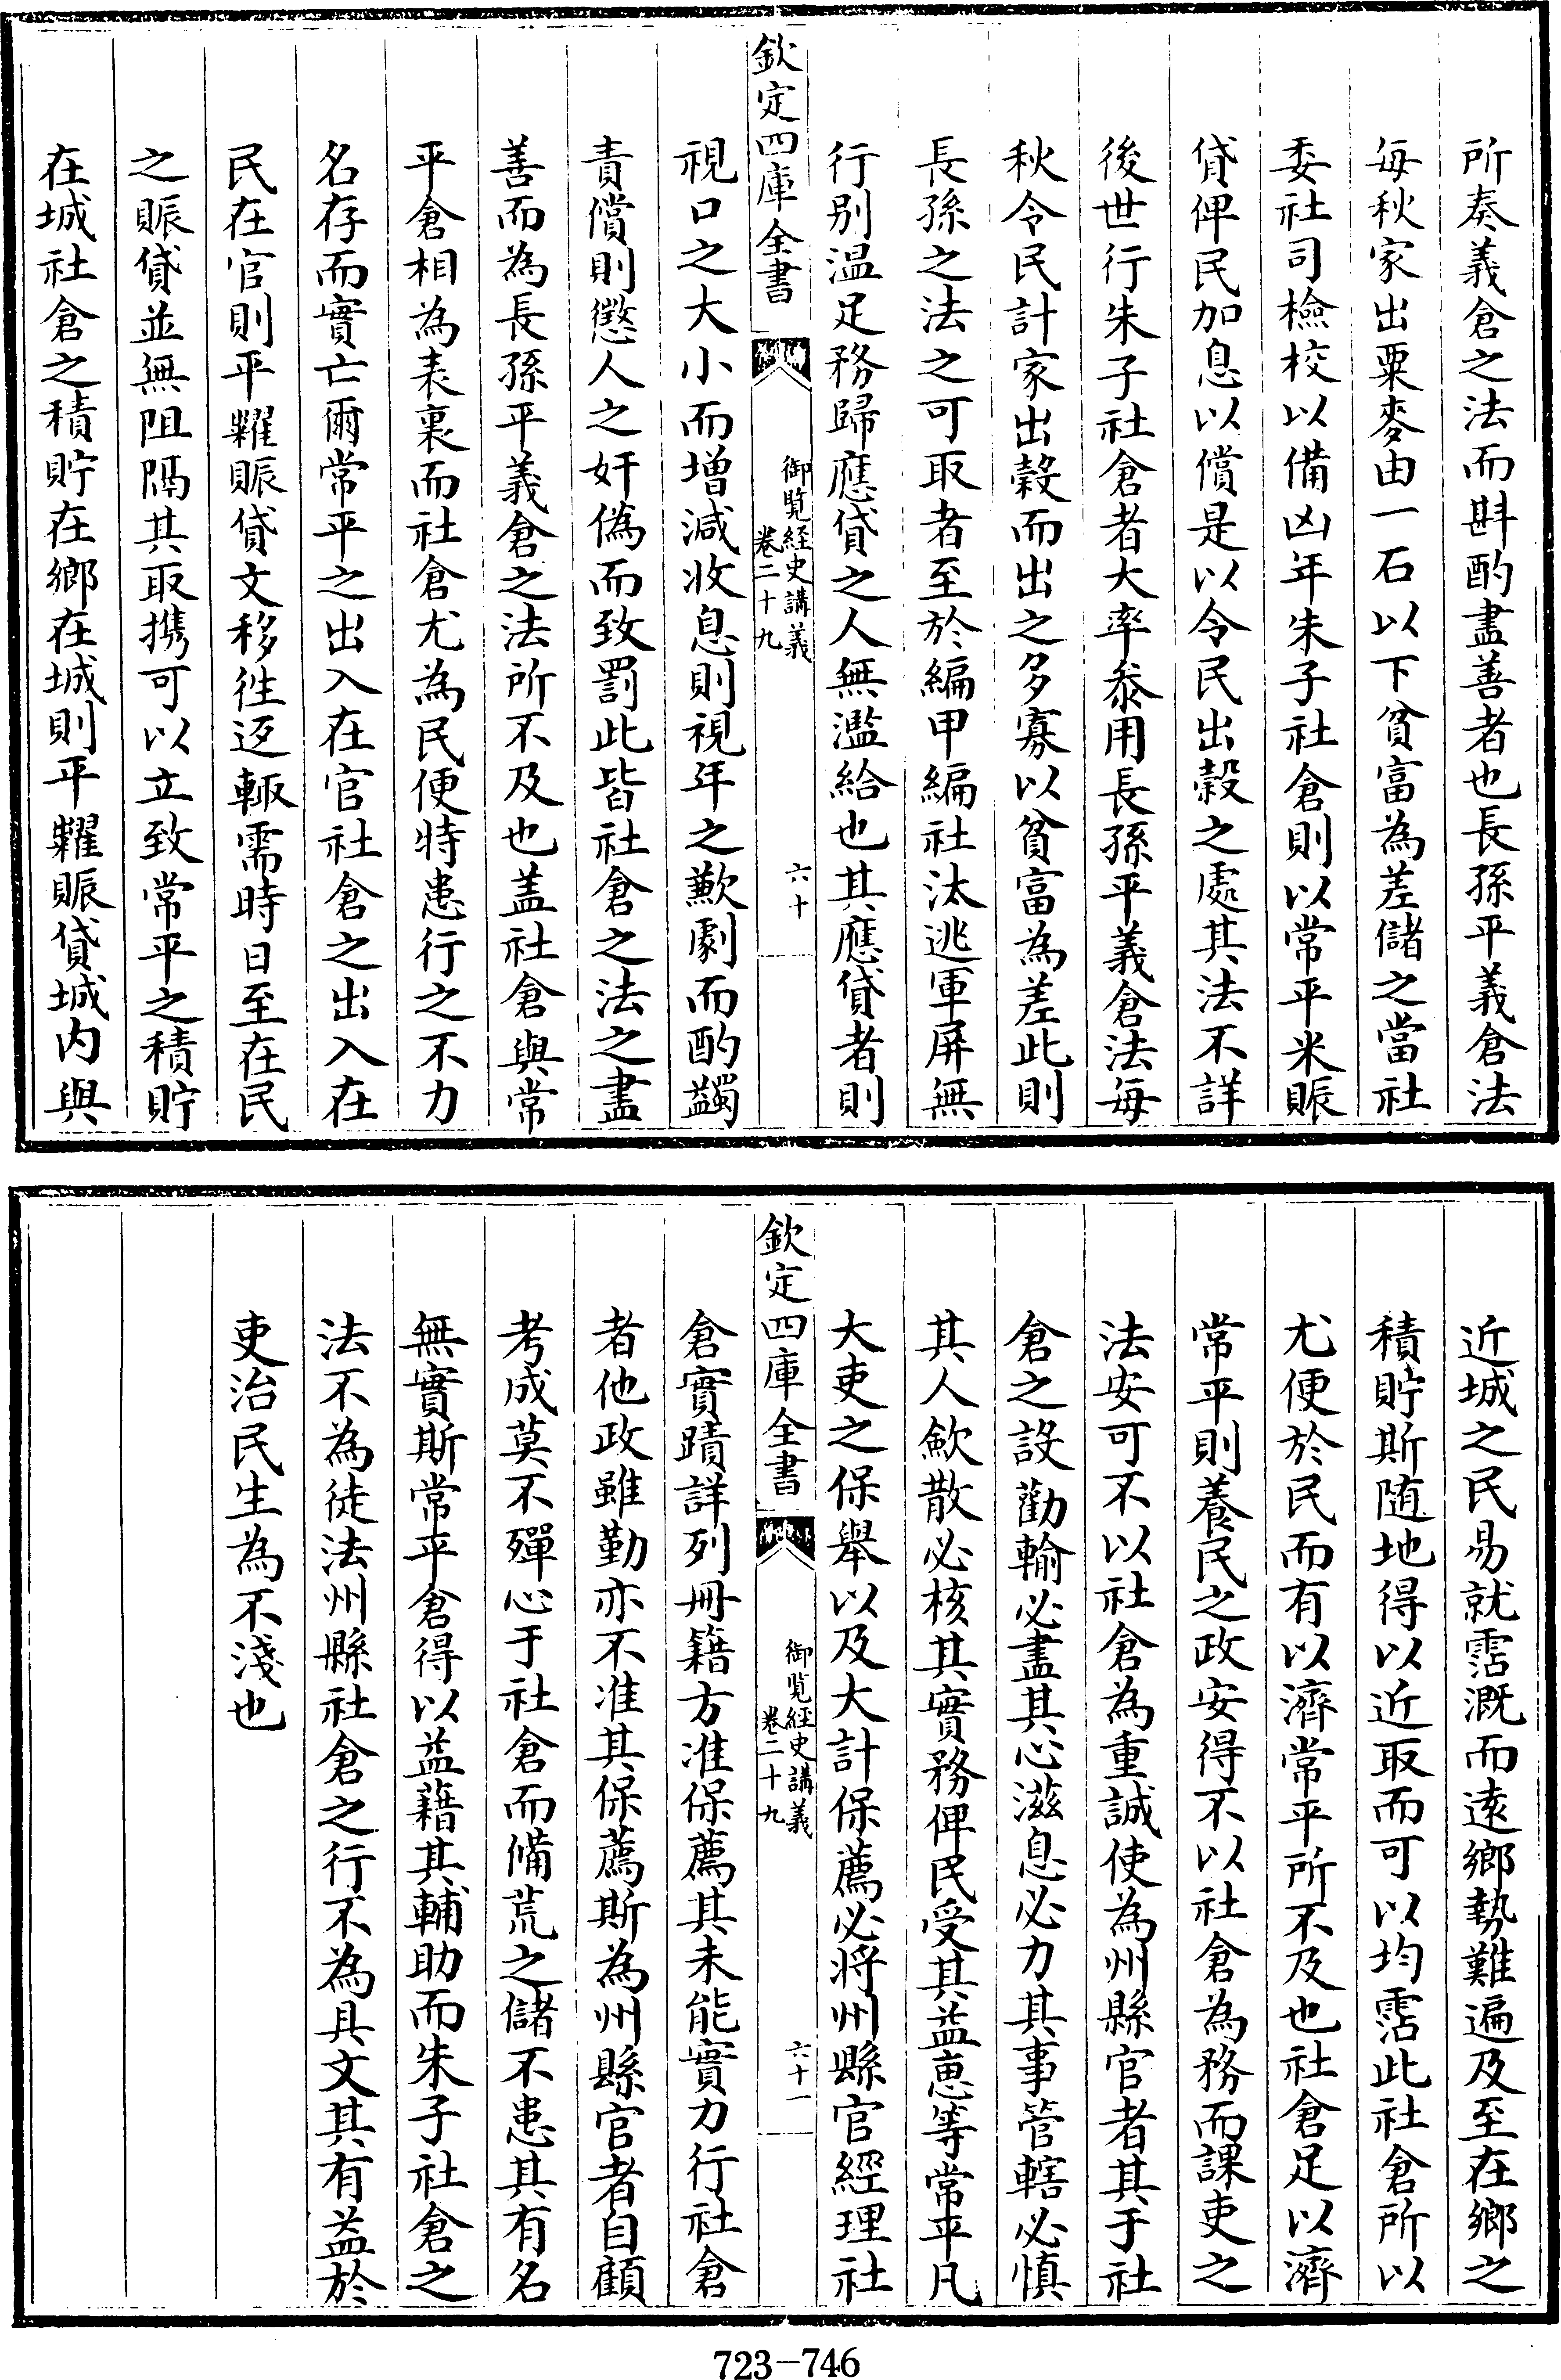 所奏義倉之法而斟酌盡善者也長孫平義倉法
每秋家出粟麥由一石以下貧富為差儲之當社
委社司檢校以備凶年朱子社倉則以常平米賑
貸俾民加息以償是以令民出穀之處其法不詳
後世行朱子社倉者大率叅用長孫平義倉法每
秋令民計家出穀而出之多寡以貧富為差此則
長孫之法之可取者至於編甲編社汰逃軍屏無
行別温足務歸應貸之人無濫給也其應貸者則
欽定四庫全書
御覽經史講義
卷二十九
六十
視口之大小而增減收息則視年之歉劇而酌蠲
責償則懲人之奸偽而致罰此皆社倉之法之盡
善而為長孫平義倉之法所不及也盖社倉與常
平倉相為表裏而社倉尤為民便特患行之不力
名存而實亡爾常平之出入在官社倉之出入在
民在官則平糶賑貸文移徃返輒需時日至在民
之賑貸並無阻隔其取携可以立致常平之積貯
在城社倉之積貯在鄉在城則平糶賑貸城内與
近城之民易就霑溉而遠鄉勢難遍及至在鄉之
積貯斯随地得以近取而可以均霑此社倉所以
尤便於民而有以濟常平所不及也社倉足以濟
常平則養民之政安得不以社倉為務而課吏之
法安可不以社倉為重誠使為州縣官者其于社
倉之設勸輸必盡其心滋息必力其事管轄必慎
其人歛散必核其實務俾民受其益惠等常平凡
大吏之保舉以及大計保薦必將州縣官經理社
欽定四庫全書
御覽經史講義
卷二十九
六十一
倉實蹟詳列冊籍方准保薦其未能實力行社倉
者他政雖勤亦不准其保薦斯為州縣官者自顧
考成莫不殫心于社倉而備荒之儲不患其有名
無實斯常平倉得以益藉其輔助而朱子社倉之
法不為徒法州縣社倉之行不為具文其有益於
吏治民生為不淺也
723-746